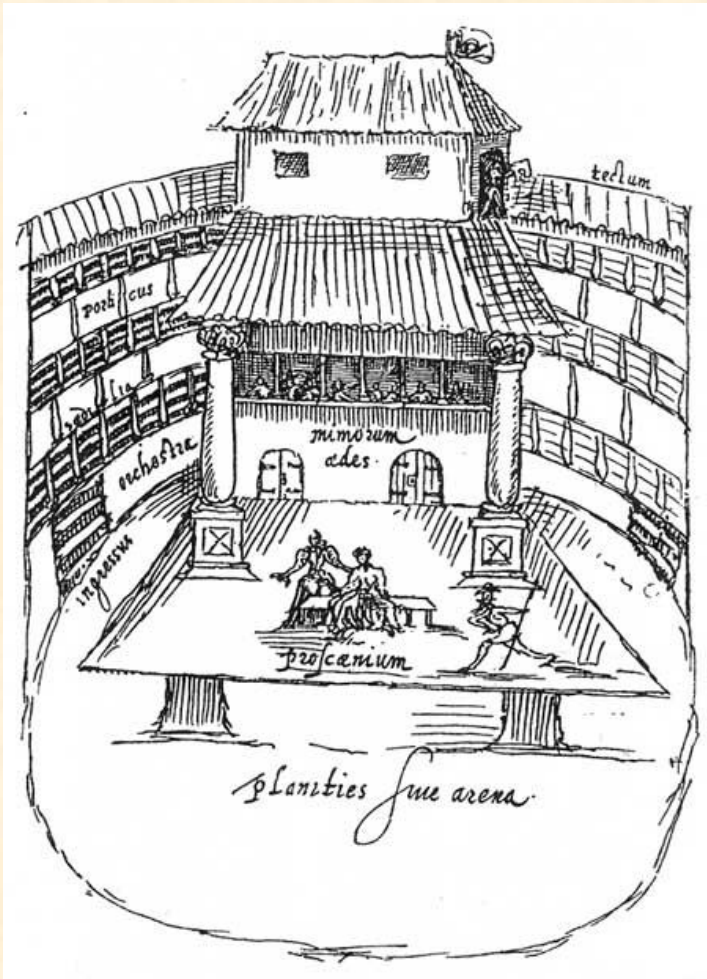 tectum
porticus
sedilia
orchestra
mimorum
ædes.
ingressus
proſcænium
planities ſiue arena.